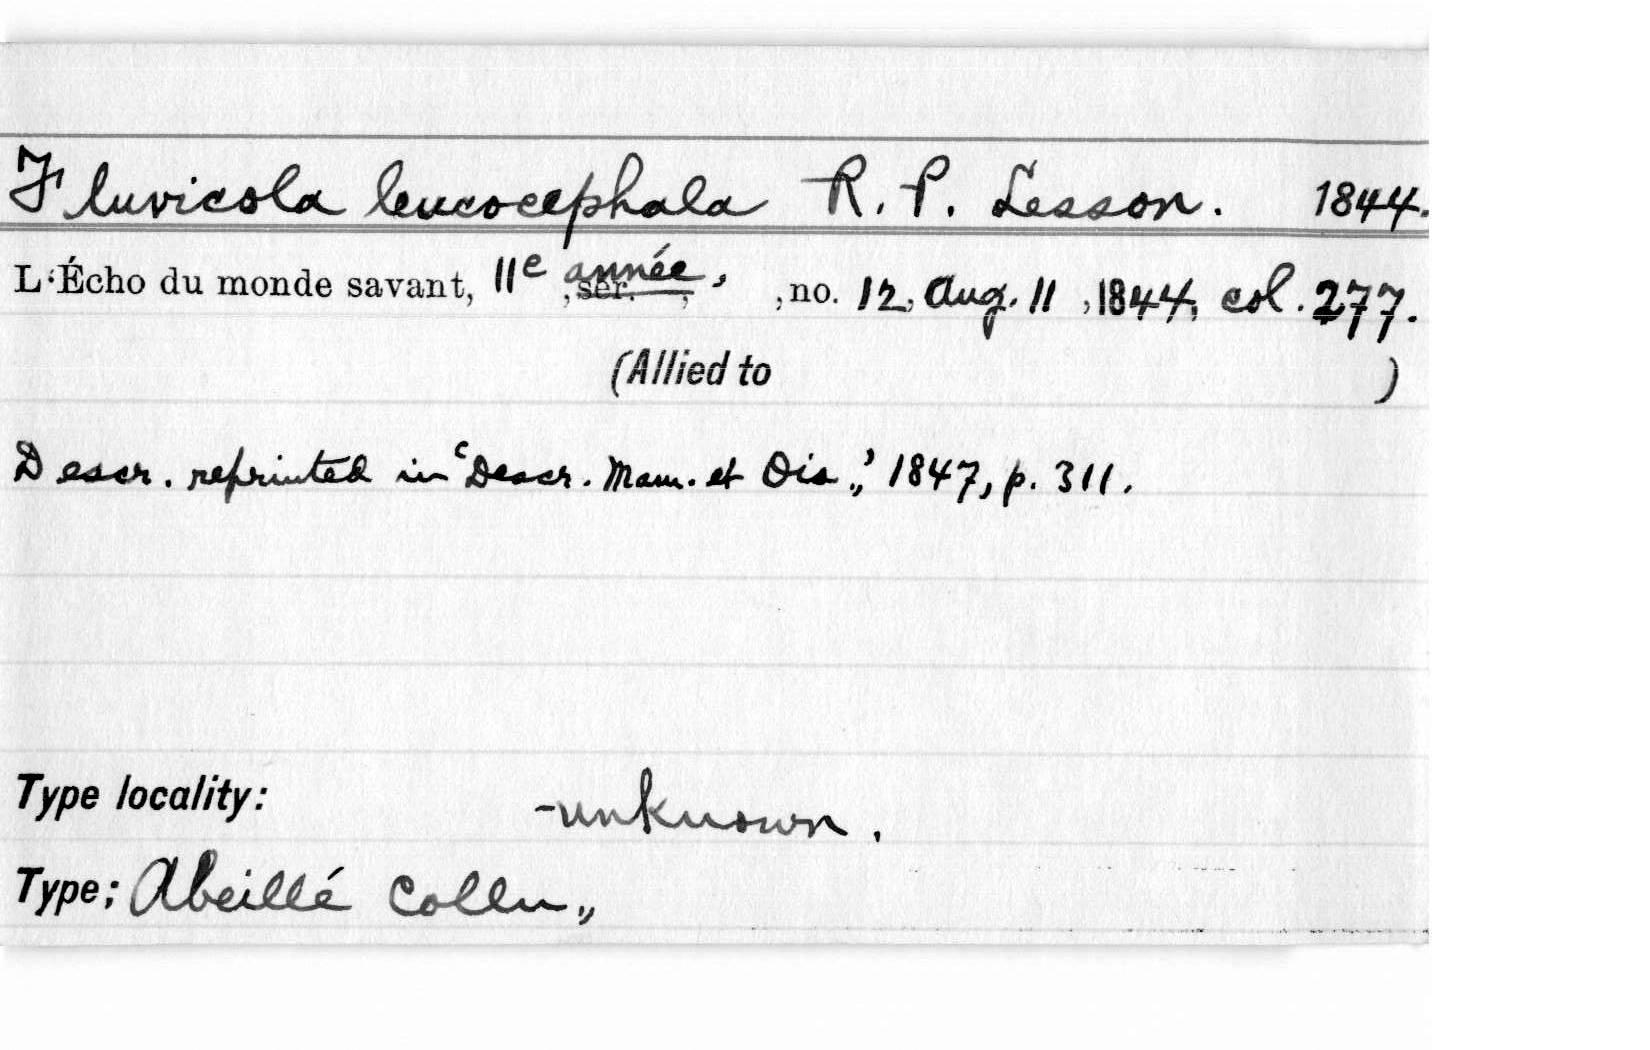 Fluvicola leucocephala R. P. Lesson. 1844.
L'Écho du monde savant, 11e année, ser. , , no. 12, Aug. 11, 1844, col. 277.
(Allied to )
Descr. reprinted in 'Descr. Mam. et Ois.,' 1847, p. 311.
Type locality: -unknown.
Type; Abeillé Colln.,